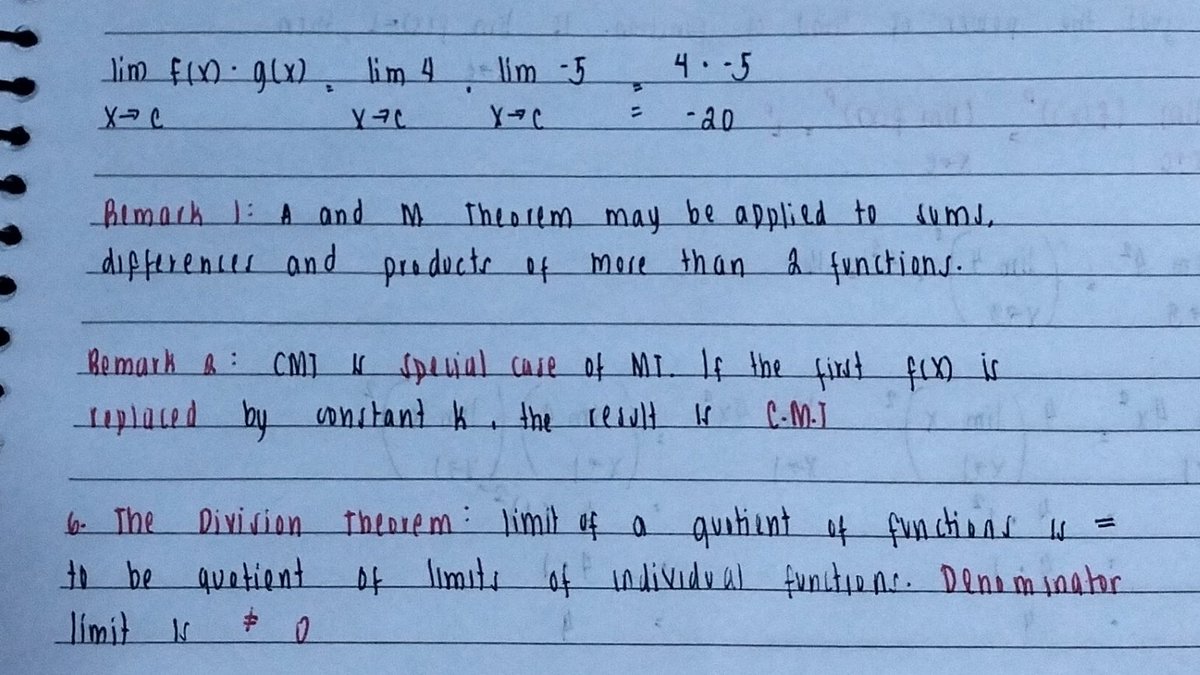 lim f(x) · g(x) = lim 4 · lim -5 = 4 · -5
x→c x→c x→c = -20
Remark 1: A and M Theorem may be applied to sums,
differences and products of more than 2 functions.
Remark 2: CMT is special case of MT. If the first f(x) is
replaced by constant k, the result is C.M.T
6. The Division Theorem: limit of a quotient of functions is =
to be quotient of limits of individual functions. Denominator
limit is ≠ 0